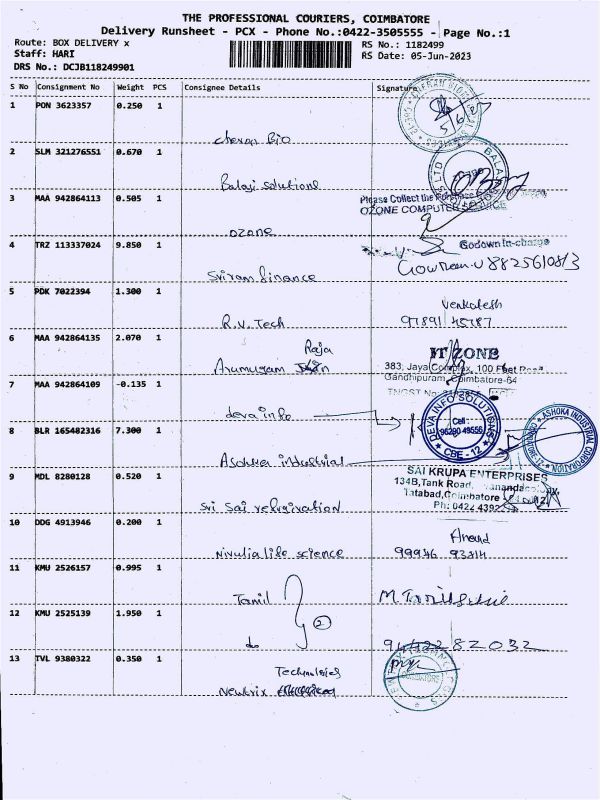 THE PROFESSIONAL COURIERS, COIMBATORE
Delivery Runsheet - PCX - Phone No.:0422-3505555 - Page No.:1
Route: BOX DELIVERY x
RS No.: 1182499
Staff: HARI
RS Date: 05-Jun-2023
DRS No.: DCJB118249901
S No Consignment No Weight PCS Consignee Details Signature
1 PON 3623357 0.250 1
Chexon Bio
2 SLM 321276551 0.670 1
Balaji solutions
3 MAA 942864113 0.505 1
Please Collect the
OZONE COMPUTER SERVICE
ozone
4 TRZ 113337024 9.850 1
Godown In-charge
Sriram finance
5 PDK 7022394 1.300 1
Venkatesh
R.V. Tech
6 MAA 942864135 2.070 1
Raja
Arumugam
IT ZONE
383, Jaya Complex, 100 Feet Road
Gandhipuram, Coimbatore-64
7 MAA 942864109 -0.135 1
deva info
DEVA INFO SOLUTIONS
Cell :
CBE - 12
8 BLR 165482316 7.300 1
Ashoka industrial
ASHOKA INDUSTRIAL CORPORATION
9 MDL 8280128 0.520 1
SAI KRUPA ENTERPRISES
134B,Tank Road,
Tatabad,Coimbatore
Sri Sai refrigiration
10 DDG 4913946 0.200 1
Anand
Nivulia life science
11 KMU 2526157 0.995 1
Tamil
12 KMU 2525139 1.950 1
do
2
13 TVL 9380322 0.350 1
Technologies
Newtrix